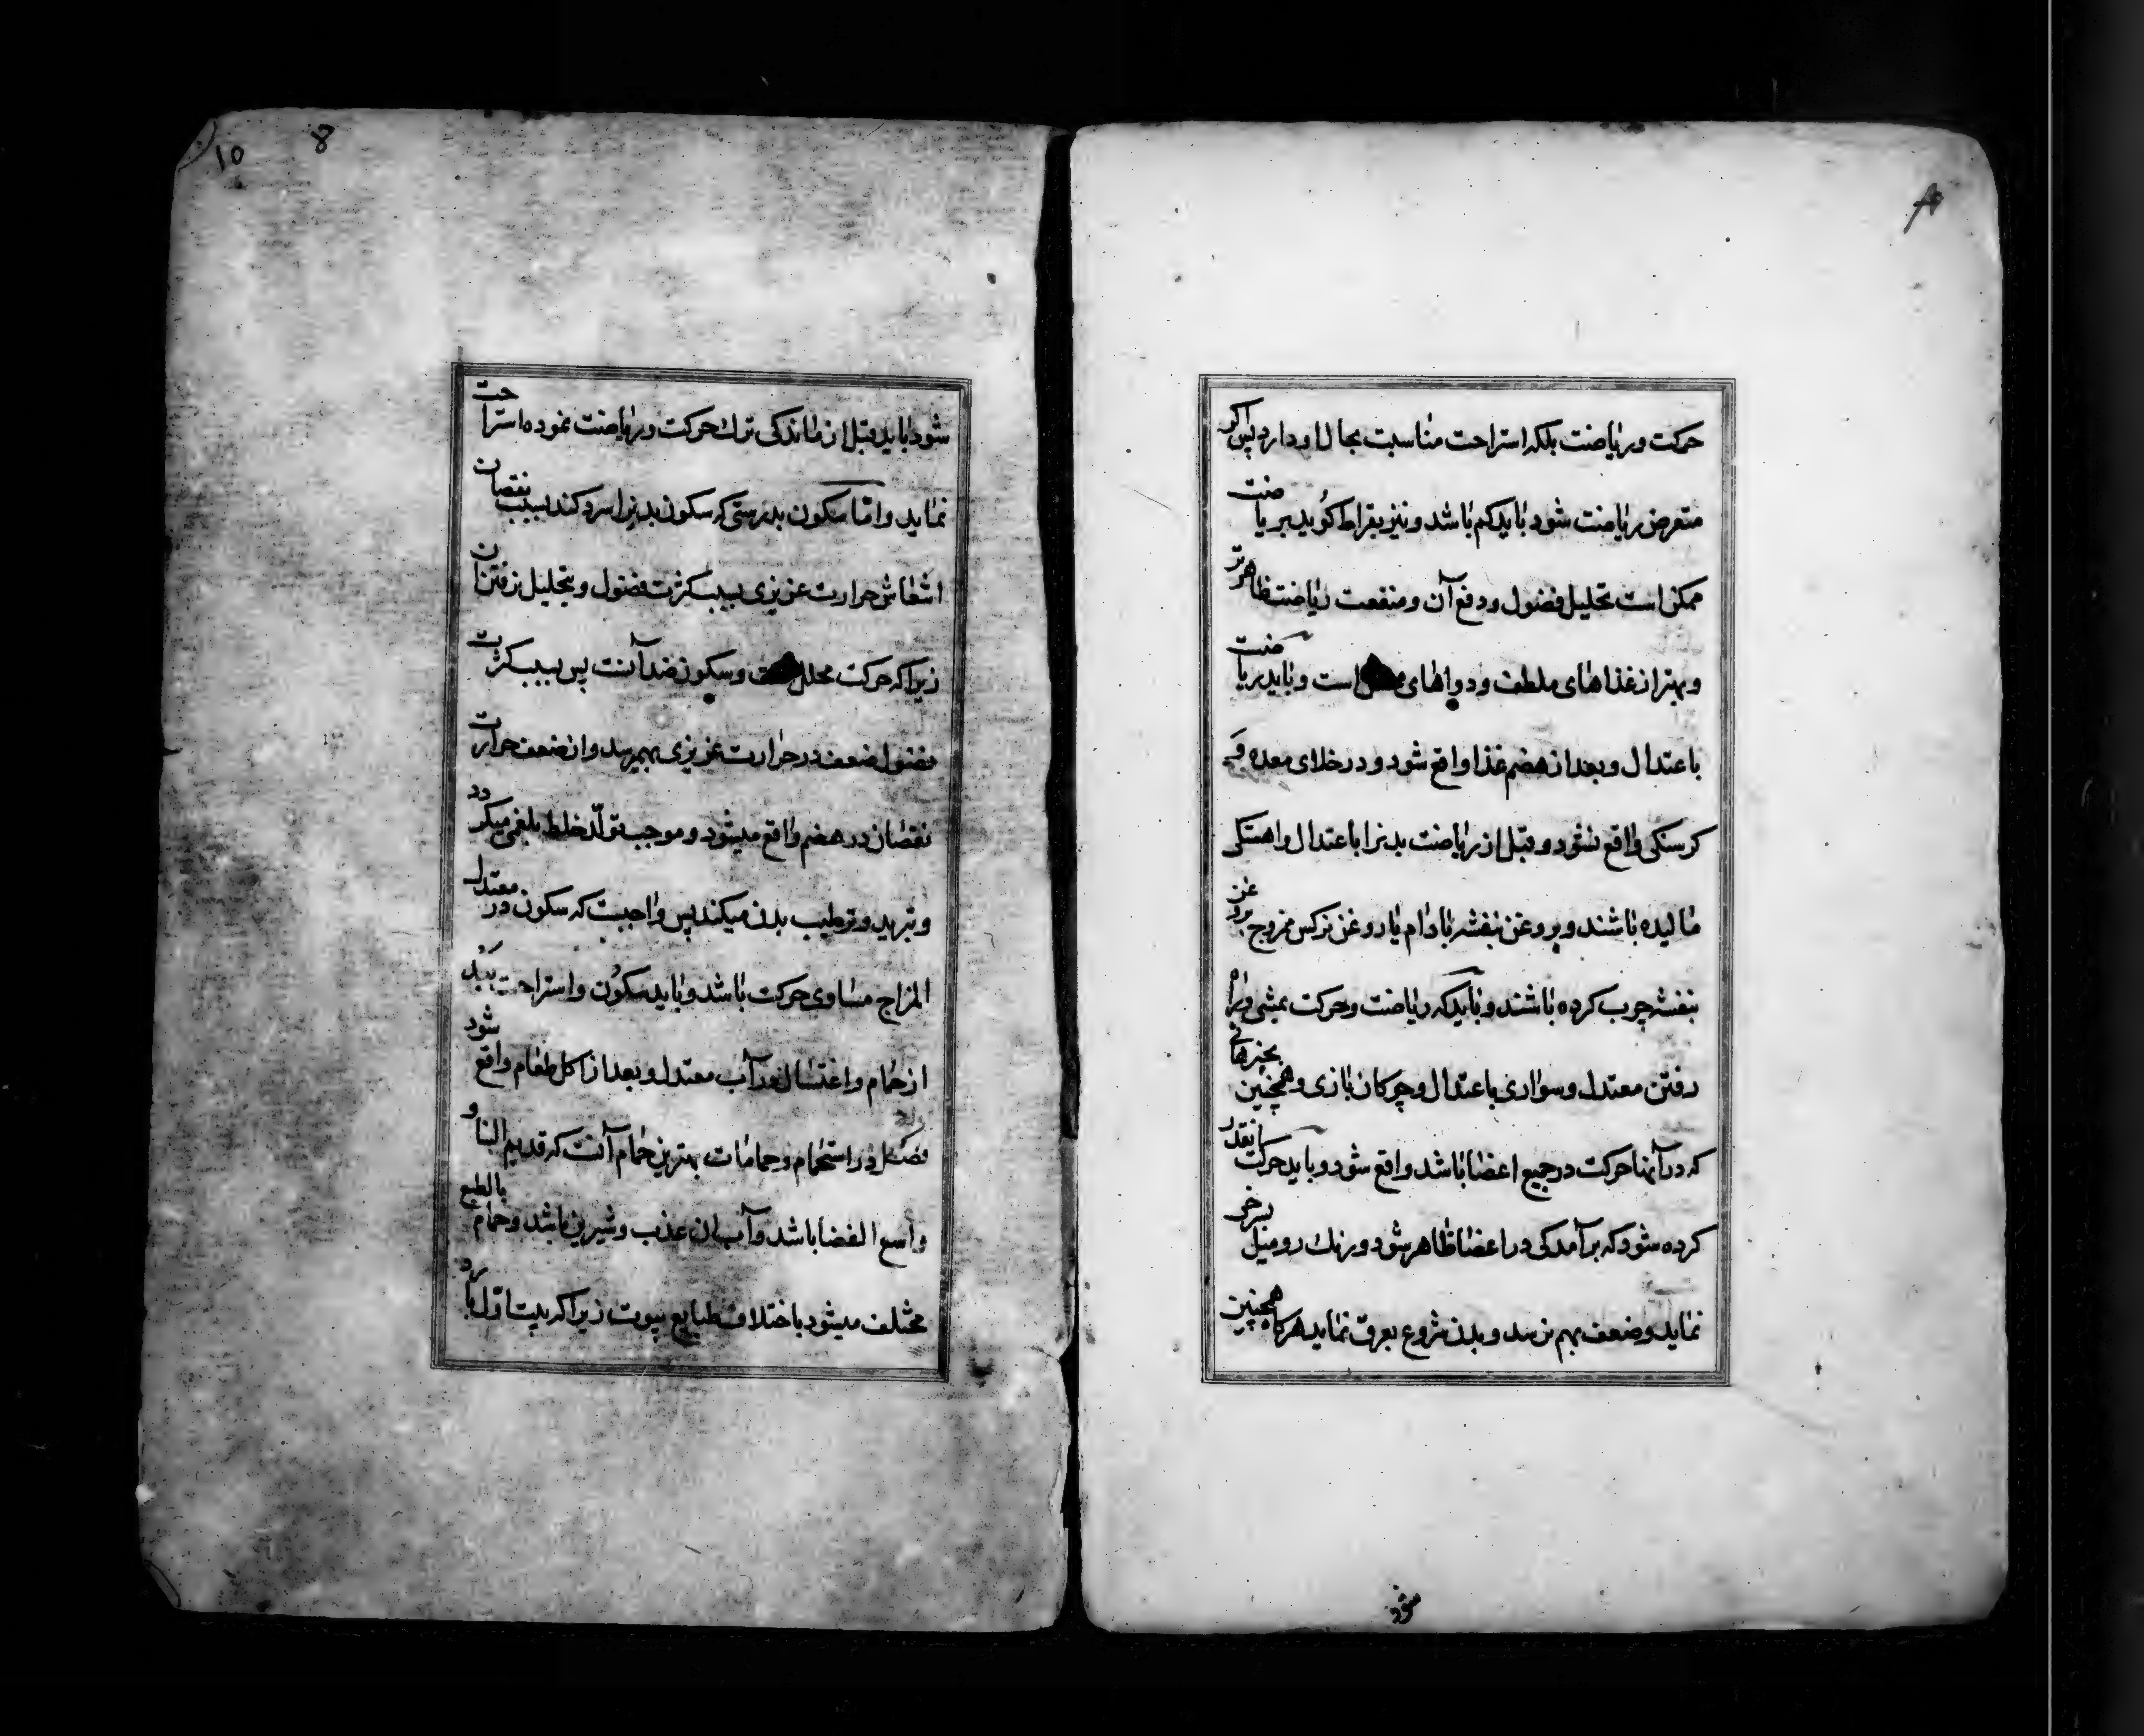 حرکت و ریاضت بلکه استراحت مناسبت بحال او دارد پس اگر
متعرض ریاضت شود باید کم باشد و نیز بقراط کوید بریاضت
ممکن است تحلیل فضول و دفع آن و منفعت ریاضت ظاهرتر
و بهتر از غذاهای ملطف و دواهای است و باید ریاضت
باعتدال و بعد از هضم غذا واقع شود و در خلای معده و
کرسنکی واقع نشود و قبل از ریاضت بدنرا باعتدال و اهستکی
مالیده باشند و بروغن بنفشه بادام یا روغن نرکس ممزوج بروغن
بنفشه چرب کرده باشند و باید که ریاضت و حرکت بمشی و راه
رفتن معتدل و سواری باعتدال و چوکان بازی و همچنین بچیزهائی
که در آنها حرکت در جمیع اعضا باشد واقع شود و باید حرکت انقدر
کرده شود که برآمدکی در اعضا ظاهر شود و رنک رو میل بسرخی
نماید و ضعف بهم نرسد و بدن شروع بعرق نماید هرکاه همچنین
شود
10 8
شود باید قبل از ماندکی ترک حرکت و ریاضت نموده استراحت
نماید و امّا سکون بدرستی که سکون بدنرا سرد کند بسبب نقصان
حرارت غریزی بسبب کثرت فضول و بتحلیل نرفتن ان
زیرا که حرکت محلل و سکون ضد آنست پس بسبب کثرت
فضول ضعف در حرارت غریزی بهم رسد و از ضعف حرارت
نقصان در هضم واقع میشود و موجب تولّد خلط بلغمی میکردد
و تبرید و ترطیب بدن میکند پس واجبست که سکون در معتدل
المزاج مساوی حرکت باشد و باید سکون و استراحت بعد
از حمام و اغتسال در آب معتدل و بعد از اکل طعام واقع شود
فصل در استحمام و حمامات بهترین حمام آنست که قدیم البنا و
واسع الفضا باشد و آب ان عذب و شیرین باشد و حمام بالطبع
مختلف میشود باختلاف طبایع بیوت زیرا که بیت اوّل بارد